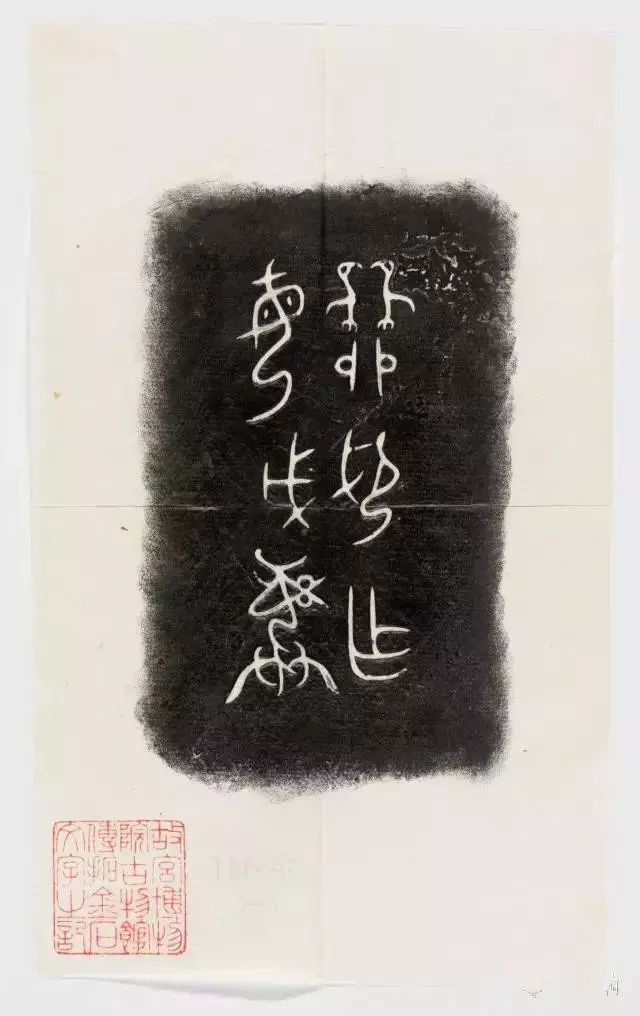 乍
母戊彝
故宮博物
院古物館
傳拓金石
文字之記